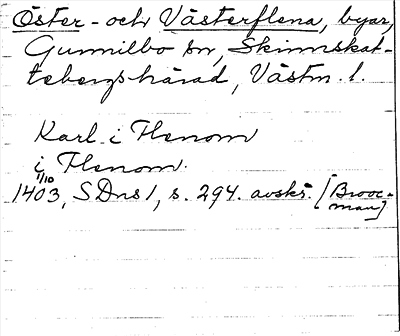 Öster- och Västerflena, byar,
Gunnilbo sn, Skinnskat-
tebergs härad, Västm. l.
Karl i Flenom
i Flenom.
1/10
1403, SDns 1, s. 294. avskr. [Brooc-
man]